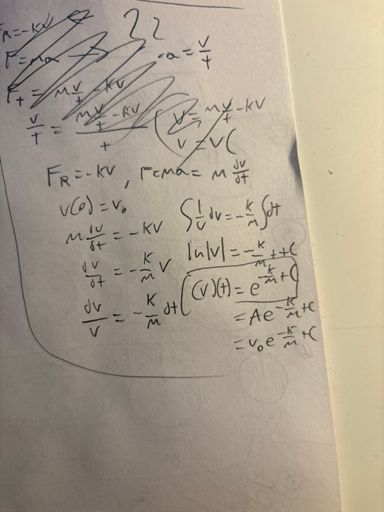 F_R = -kv ??
F = ma → -a = v/t
F_t = m v/t - kv
v/t = (m v/t - kv)/t (v = m v/t - kv
v = v(
F_R = -kv, F = ma = m dv/dt
v(0) = v₀
m dv/dt = -kv
dv/dt = -k/m v
dv/v = -k/m dt
∫ 1/v dv = -k/m ∫ dt
ln|v| = -k/m t + C
(v)(t) = e^(-k/m t + C)
= A e^(-k/m t + C)
= v₀ e^(-k/m t + C)